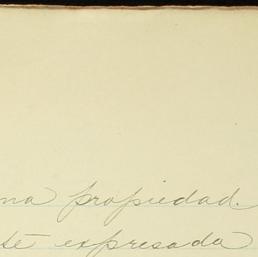 na propiedad.
té expresada